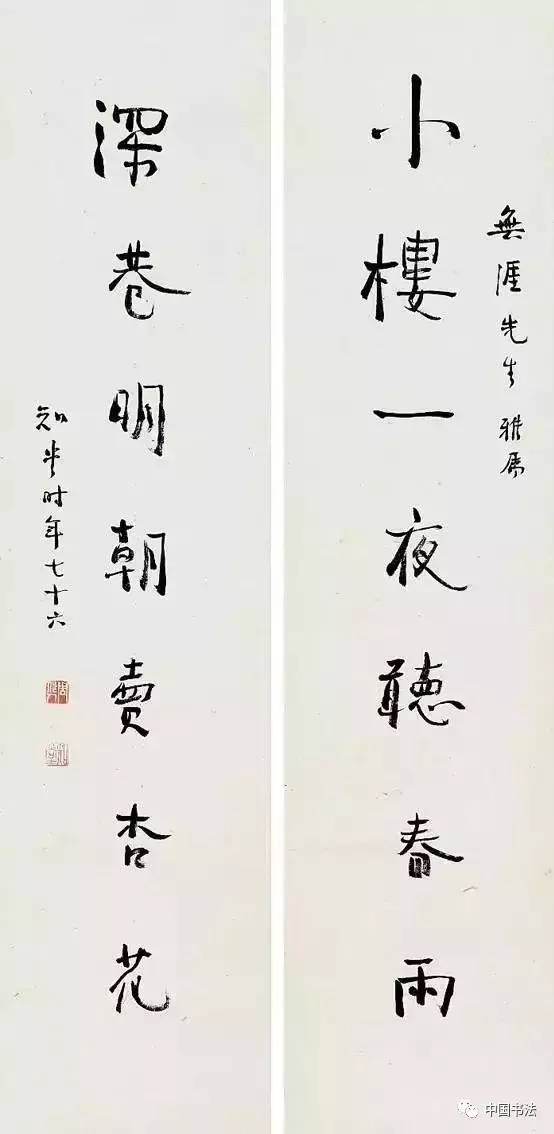 無涯先生雅属
小樓一夜聽春雨
深巷明朝賣杏花
知堂时年七十六
中国书法